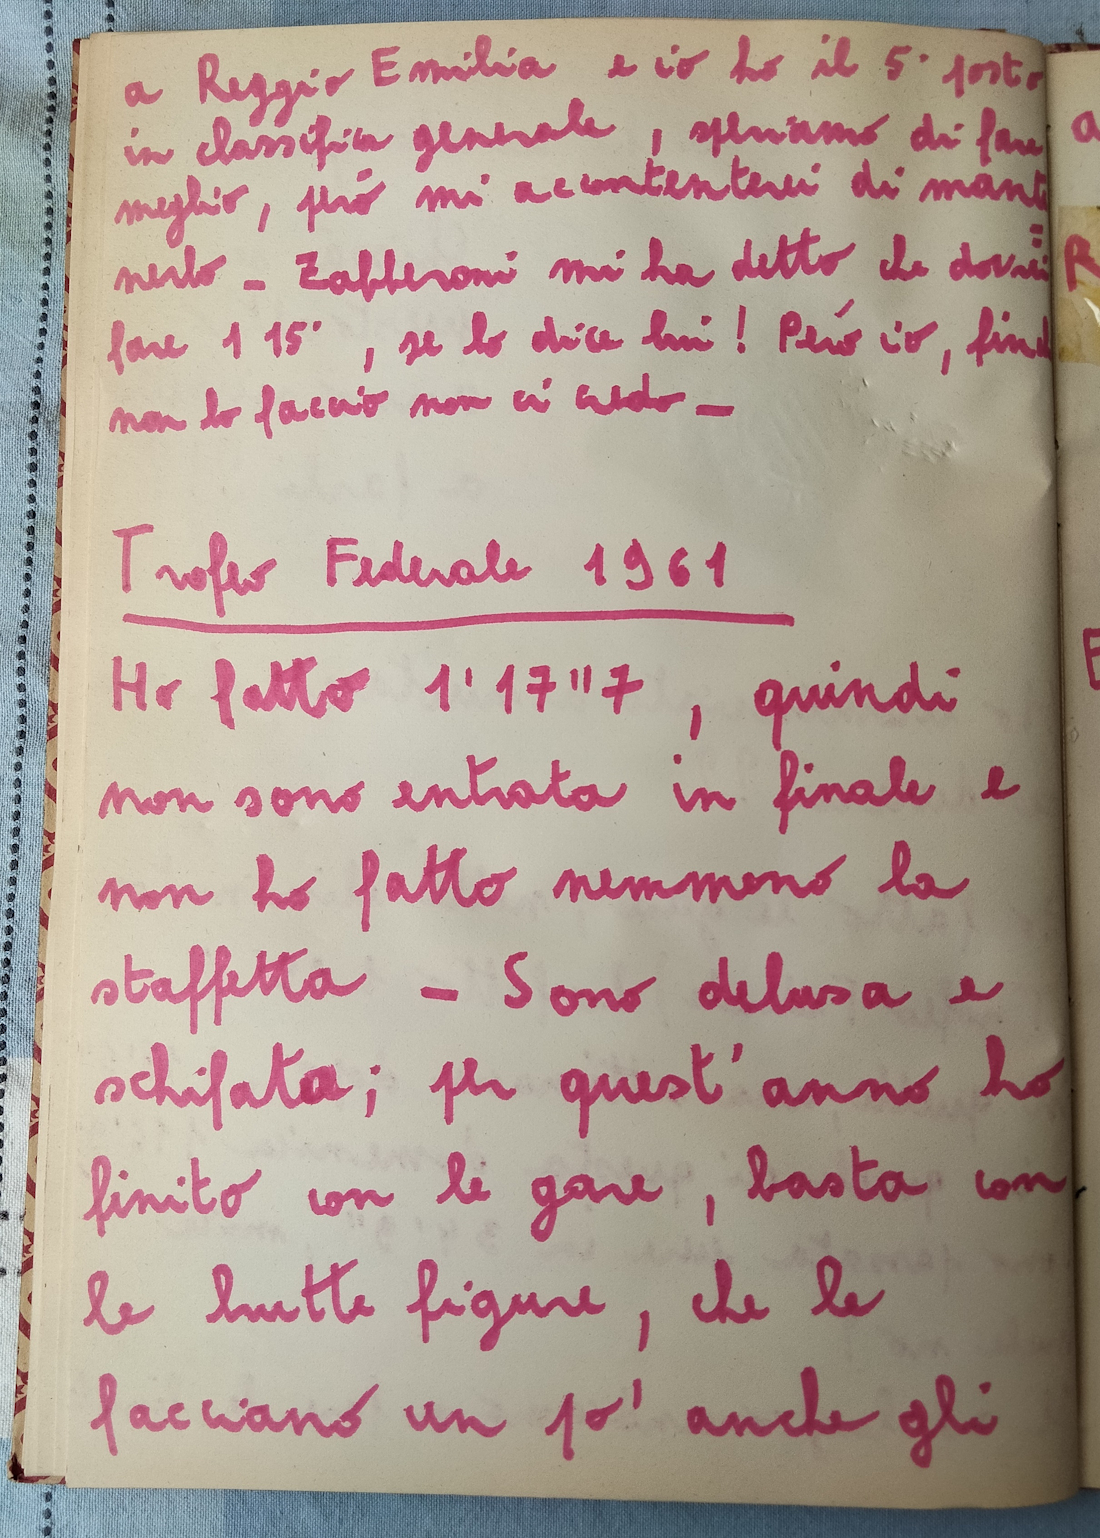 a Reggio Emilia e io ho il 5° posto
in classifica generale, speriamo di fare
meglio, però mi accontenterei di mante=
nerlo - Zabberoni mi ha detto che dovrei
fare 1 15", se lo dice lui! Però io, finchè
non lo faccio non ci credo -
Trofeo Federale 1961
Ho fatto 1' 17" 7, quindi
non sono entrata in finale e
non ho fatto nemmeno la
staffetta - Sono delusa e
schifata; per quest'anno ho
finito con le gare, basta con
le brutte figure, che le
facciano un po' anche gli